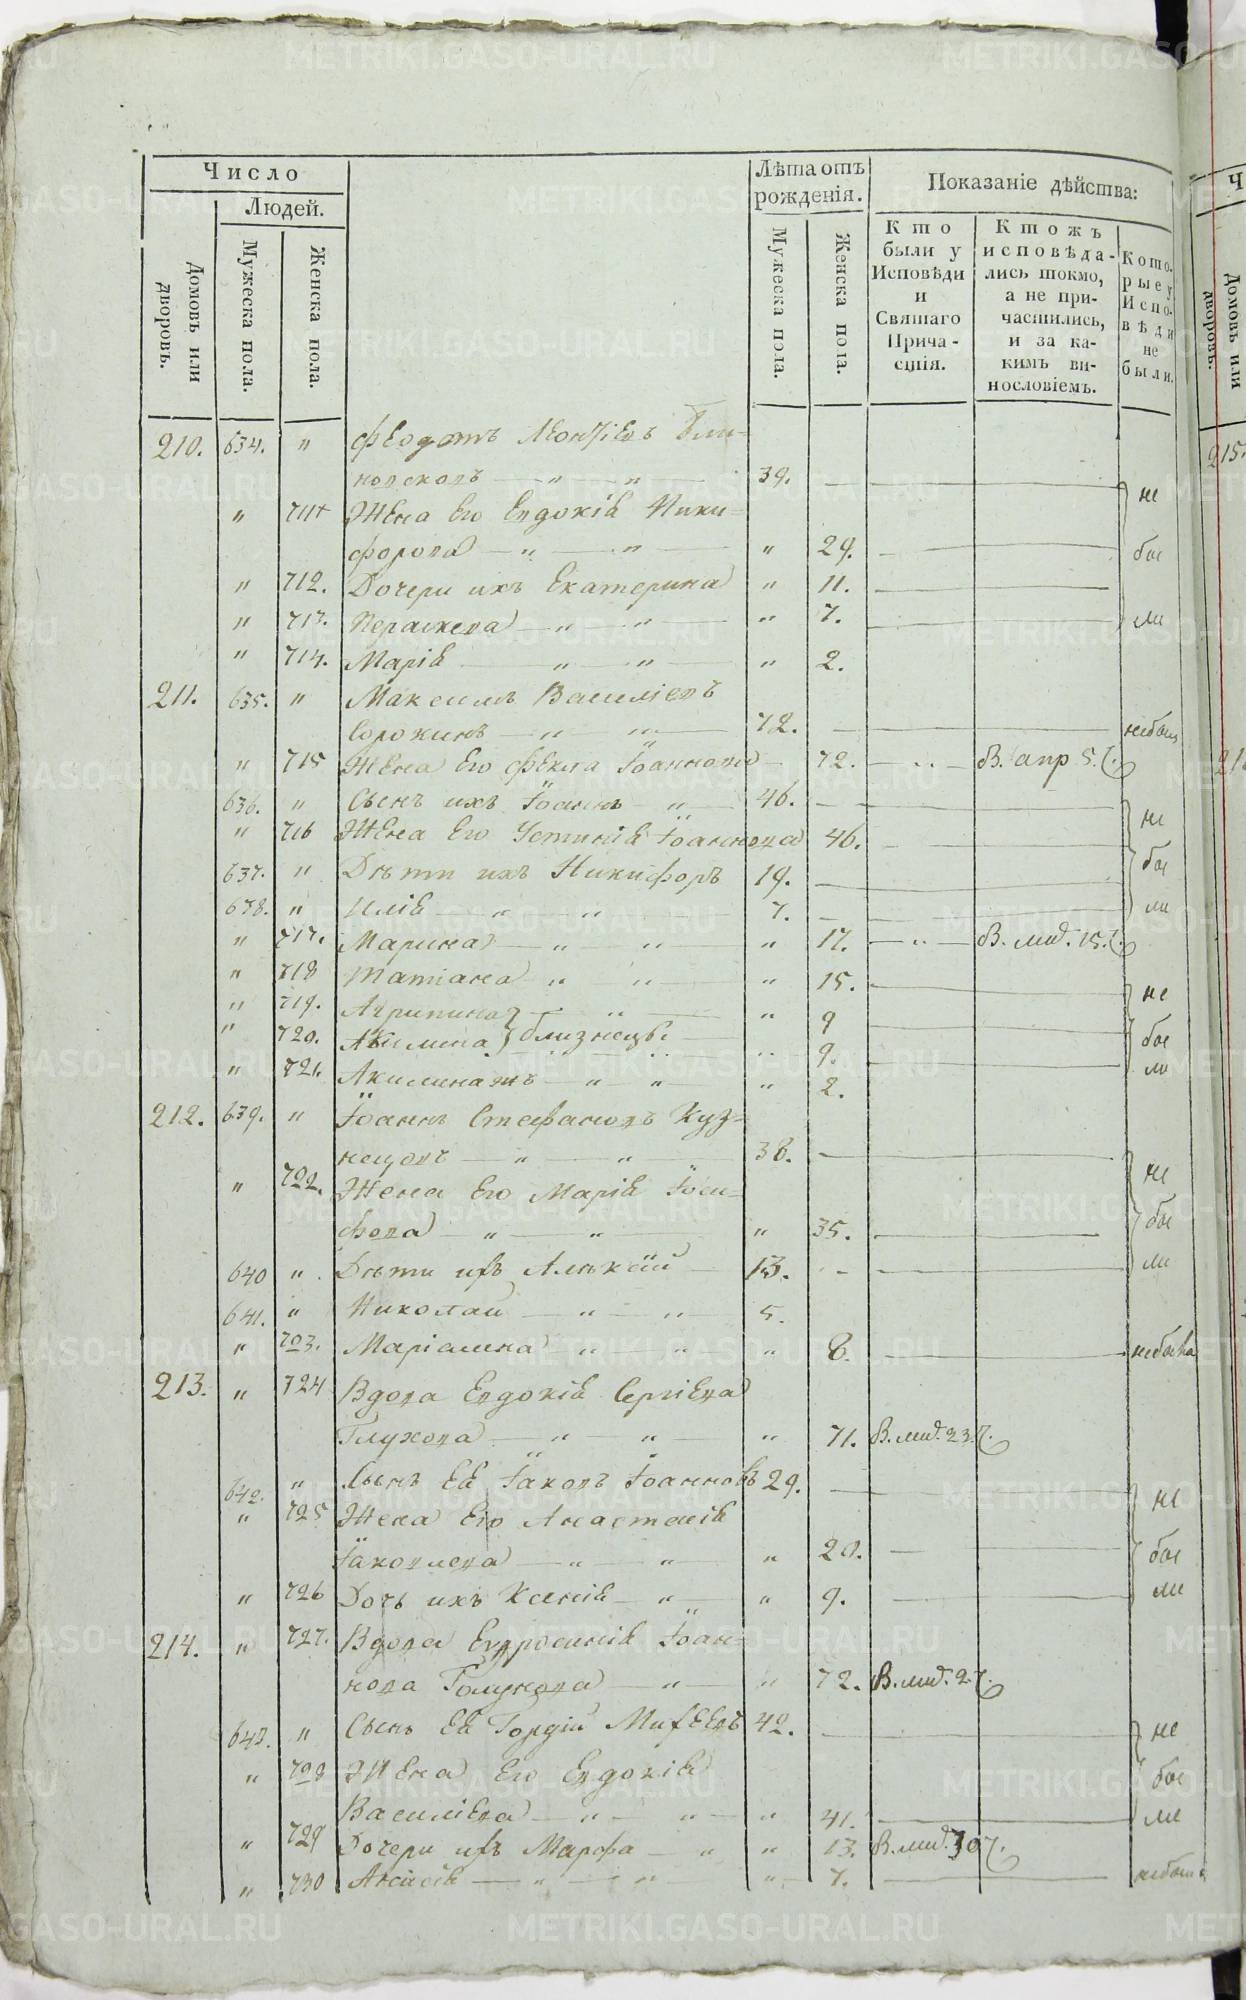 Число
Людей.
Домовъ или дворовъ.
Мужеска пола.
Женска пола.
Лѣта отъ рожденія.
Мужеска пола.
Женска пола.
Показаніе дѣйства:
Кто были у Исповѣди и Святаго Причастія.
Ктожъ исповѣдались токмо, а не причастились, и за какимъ винословіемъ.
Которые у Исповѣди не были.
210. 634. " Феодотъ Леонтіевъ
" " 39. не
" 711 Жена Его Евдокія Ники=
форова " " " 29. бы
" 712. Дочери ихъ Екатерина " 11.
" 713. Параскева " " " 7. ли
" 714. Марія " " " 2.
211. 635. " Максимъ Василіевъ
Сорокинъ " " 72. небылъ
" 715 Жена Его Фекла Іоаннова 72. " В. апр 5.
636. " Сынъ ихъ Іоаннъ " 46. не
" 716 Жена Его Устинія Іоаннова 46.
637. " Дѣти ихъ Никифоръ 19. бы
638. " Илія " " 7. ли
" 717. Марина " " " 17. "
" 718 Татіана " " " 15. не
" 719. Агрипина " " 9
" 720. Акилина } близнецы " 9. бы
" 721. " " " 2. ли
212. 639. " Іоаннъ Стефановъ Куз=
нецовъ " " 38. не
" 722. Жена Его Марія Іоси=
фова " " " 35. бы
640 " Дѣти ихъ Алексій 13. ли
641. " Николай " " 5.
" 723. Маріамна " " " 8. небыла
213. " 724 Вдова Евдокія Сергіева
Глухова " " " 71.
642. " Сынъ Ея Іаковъ Іоанновъ 29. не
" 725 Жена Его Анастасія
Іаковлева " " " 20. бы
" 726 Дочь ихъ Ксенія " " 9. ли
214. " 727. Вдова Евфросинія Іоан=
нова " " 72.
643. " Сынъ Ея Гордій Михеевъ 42. не
" 728 Жена Его Евдокія бы
Василіева " " " 41. ли
" 729 Дочери ихъ Марфа " " 13.
" 730 " " " 7.
Домовъ или дворовъ.
215.
METRIKI.GASO-URAL.RU